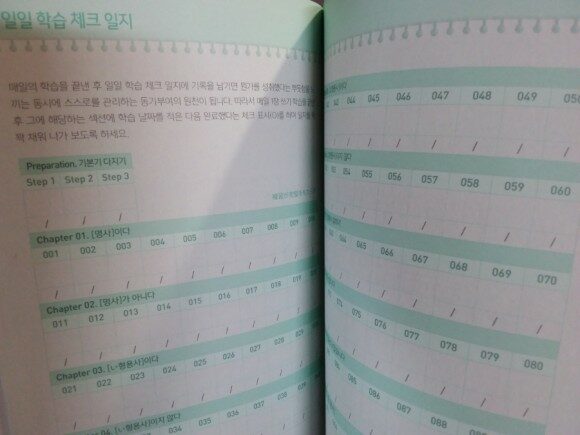 일일 학습 체크 일지
매일의 학습을 끝낸 후 일일 학습 체크 일지에 기록을 남기면 뭔가를 성취했다는 뿌듯함을
끼는 동시에 스스로를 관리하는 동기부여의 원천이 됩니다. 따라서 매일 1장 쓰기 학습을 끝낸
후 그에 해당하는 섹션에 학습 날짜를 적은 다음 완료했다는 체크 표시(O)를 하여 일지를
꽉 채워 나가 보도록 하세요.
Preparation. 기본기 다지기
Step 1 Step 2 Step 3
/ / /
Chapter 01. [명사]이다
001 002 003 004 005 006 007 008 009 010
/ / / / / / / / / /
Chapter 02. [명사]가 아니다
011 012 013 014 015 016 017 018 019
/ / / / / / / / /
Chapter 03. [ㄴ-형용사]이다
021 022 023 024 025 026 027 028 029
/ / / / / / / /
[ㄴ-형용사]이지 않다
044 045 046 047 048 049
/ / / / / /
않다
054 055 056 057 058 059 060
/ / / / / / /
064 065 066 067 068 069 070
/ / / / / / /
074 075 076 077 078 079 080
/ / / / / /
085 086 087 088 089